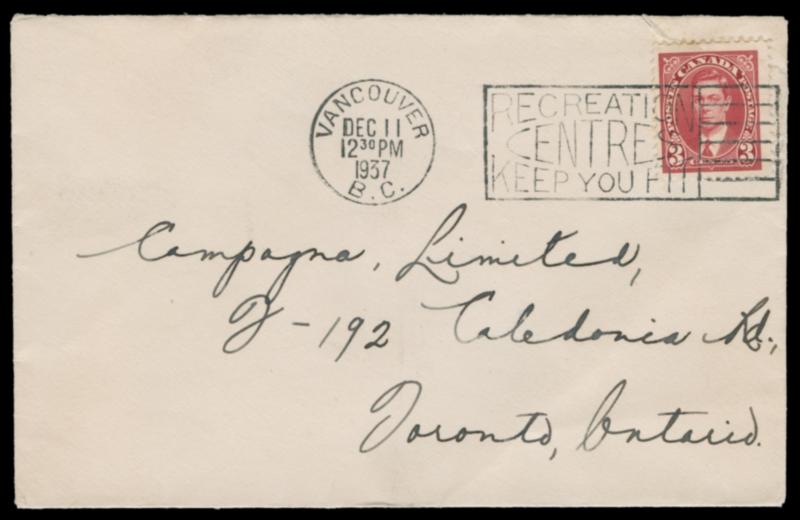 VANCOUVER
DEC 11
12 30 PM
1937
B.C.
RECREATION
CENTRES
KEEP YOU FIT
POSTES CANADA POSTAGE
3 3
Campagna, Limited,
J-192 Caledonia Rd.,
Toronto, Ontario.